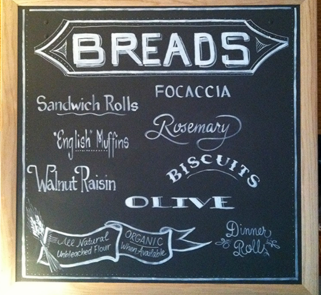 BREADS
Sandwich Rolls
FOCACCIA
"English" Muffins
Rosemary
Walnut Raisin
BISCUITS
OLIVE
All Natural
Unbleached Flour
ORGANIC
When Available
Dinner
Rolls